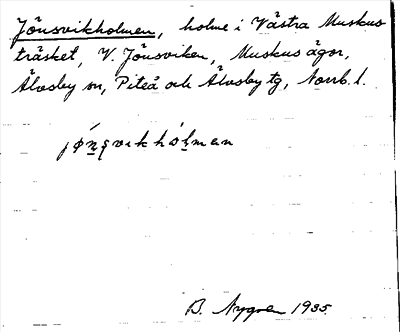 Jönsvikholmen, holme i Västra Muskus
träsket, V. Jönsviken, Muskus ägor,
Älvsby sn, Piteå och Älvsby tg, Norrb. l.
B. Nygren 1935.